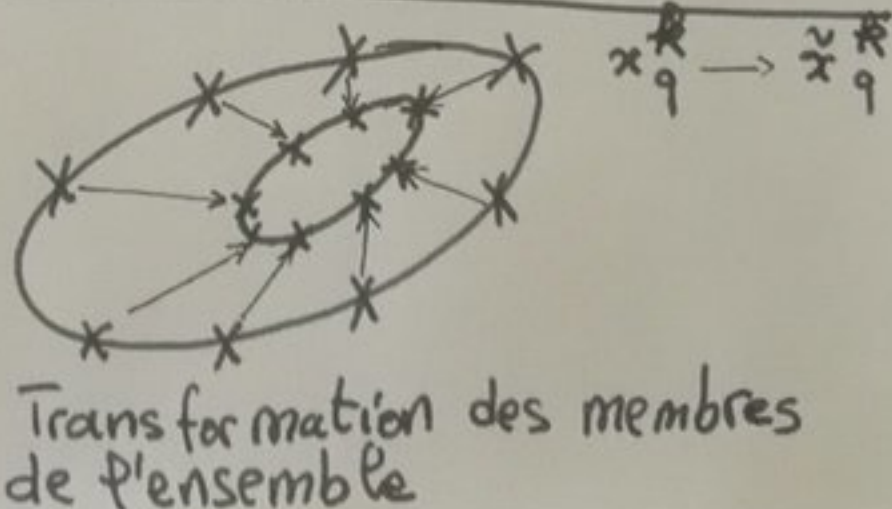 x^k_q → x̃^k_q
Transformation des membres
de l'ensemble